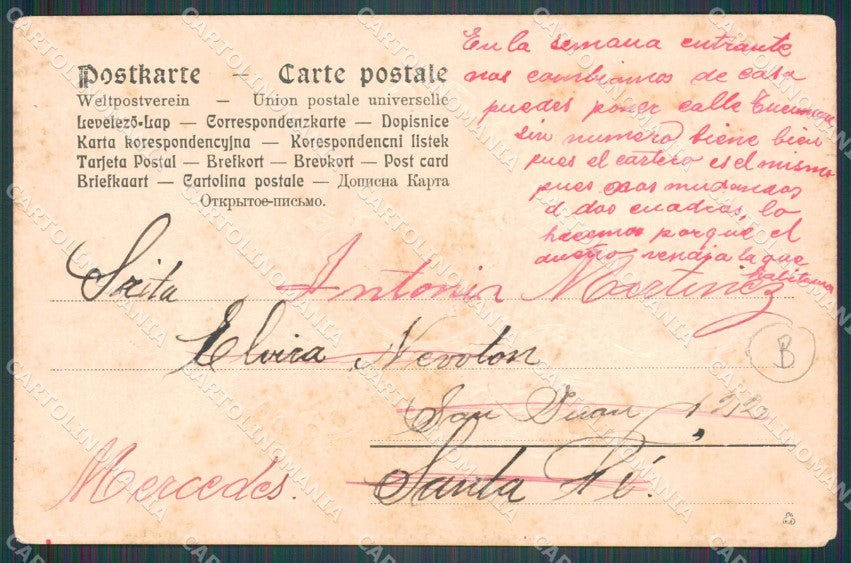 Postkarte — Carte postale
Weltpostverein — Union postale universelle
Levelező-Lap — Correspondenzkarte — Dopisnice
Karta korespondencyjna — Korespondencni listek
Tarjeta Postal — Brefkort — Brevkort — Post card
Briefkaart — Cartolina postale — Дописна Карта
Открытое-письмо.
En la semana entrante
nos cambiamos de casa
puedes poner calle Tucuman
sin numero biene bien
pues el cartero es el mismo
pues nos mudamos
a dos cuadras, lo
hacemos porque el
dueño la que
habitamos
Srita Antonia Martinez
Elvira
San Juan
Mercedes. Santa Fé.
B
CARTOLINOMANIA